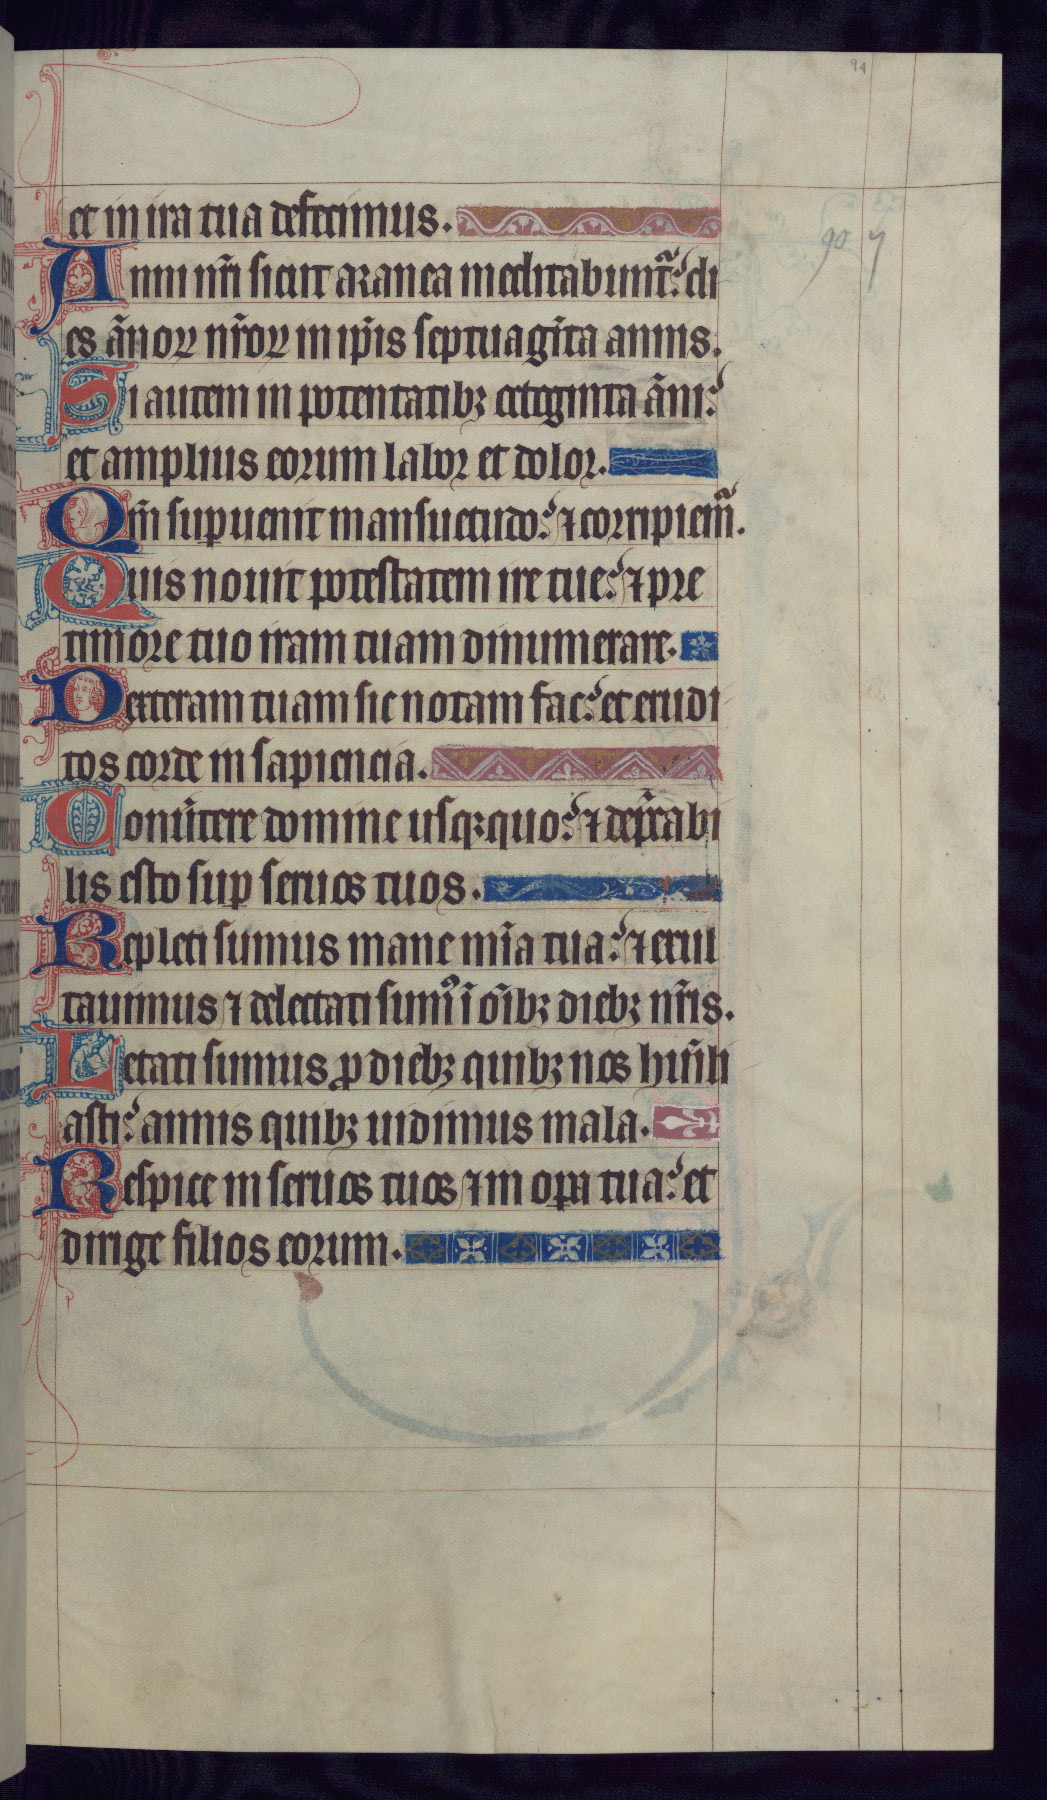 94
et in ira tua defecimus.
90 7
Anni nr̃i sicut aranea meditabunt᷑: di
es ãnoꝝ nr̃oꝝ in ip̃is septuagĩta annis.
Si autem in potentatibꝫ octoginta ãni:
et amplius eorum labor et dolor.
Qm̃ supuenit mansuetudo: ⁊ corripiem᷑.
Quis nouit potestatem ire tue: ⁊ pre
timore tuo iram tuam dinumerare.
Dexteram tuam sic notam fac: et erudi
tos corde in sapiencia.
Conũtere domine usqꝫquo: ⁊ dep̃cabi
lis esto suꝑ seruos tuos.
Repleti sumus mane mĩa tua: ⁊ exul
tauimus ⁊ delectati sumꝰ ĩ õibꝫ diebꝫ nr̃is.
Letati sumus ꝓ diebꝫ quibꝫ nos humili
asti: annis quibꝫ uidimus mala.
Respice in seruos tuos ⁊ in oꝑa tua: et
dirige filios eorum.